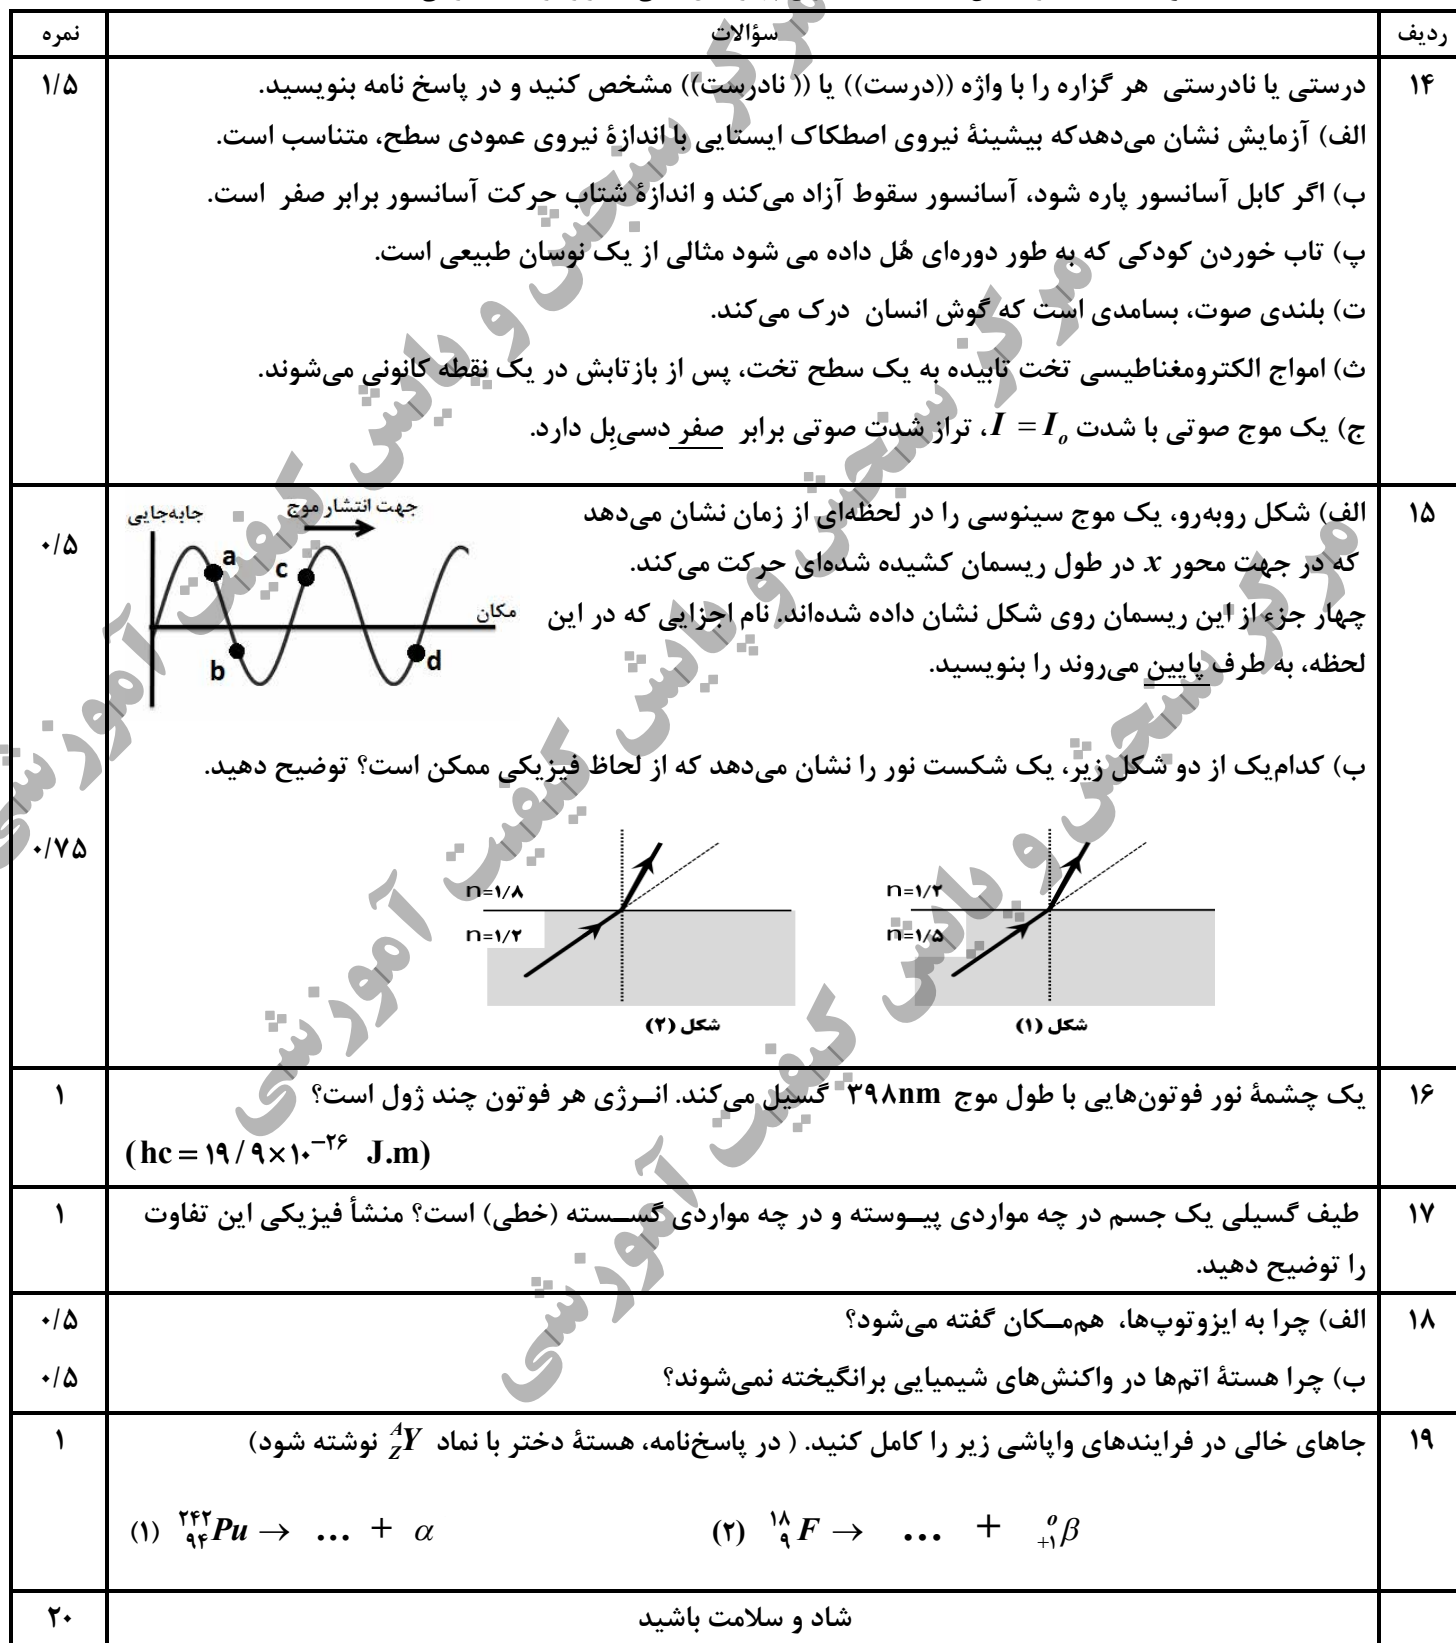 ردیف سؤالات نمره
۱۴ درستی یا نادرستی هر گزاره را با واژه ((درست)) یا (( نادرست)) مشخص کنید و در پاسخ نامه بنویسید. ۱/۵
الف) آزمایش نشان می‌دهدکه بیشینهٔ نیروی اصطکاک ایستایی با اندازهٔ نیروی عمودی سطح، متناسب است.
ب) اگر کابل آسانسور پاره شود، آسانسور سقوط آزاد می‌کند و اندازهٔ شتاب حرکت آسانسور برابر صفر است.
پ) تاب خوردن کودکی که به طور دوره‌ای هُل داده می شود مثالی از یک نوسان طبیعی است.
ت) بلندی صوت، بسامدی است که گوش انسان درک می‌کند.
ث) امواج الکترومغناطیسی تخت تابیده به یک سطح تخت، پس از بازتابش در یک نقطه کانونی می‌شوند.
ج) یک موج صوتی با شدت I = Iₒ، تراز شدت صوتی برابر صفر دسی‌بِل دارد.
۱۵ الف) شکل روبه‌رو، یک موج سینوسی را در لحظه‌ای از زمان نشان می‌دهد ۰/۵
که در جهت محور x در طول ریسمان کشیده شده‌ای حرکت می‌کند.
چهار جزء از این ریسمان روی شکل نشان داده شده‌اند. نام اجزایی که در این
لحظه، به طرف پایین می‌روند را بنویسید.
جابه‌جایی
جهت انتشار موج
a
c
مکان
b
d
ب) کدام‌یک از دو شکل زیر، یک شکست نور را نشان می‌دهد که از لحاظ فیزیکی ممکن است؟ توضیح دهید. ۰/۷۵
n=۱/۲
n=۱/۵
شکل (۱)
n=۱/۸
n=۱/۲
شکل (۲)
۱۶ یک چشمهٔ نور فوتون‌هایی با طول موج ۳۹۸nm گسیل می‌کند. انــرژی هر فوتون چند ژول است؟ ۱
(hc = ۱۹/۹×۱۰⁻²⁶ J.m)
۱۷ طیف گسیلی یک جسم در چه مواردی پیــوسته و در چه مواردی گســسته (خطی) است؟ منشأ فیزیکی این تفاوت ۱
را توضیح دهید.
۱۸ الف) چرا به ایزوتوپ‌ها، هم‌مــکان گفته می‌شود؟ ۰/۵
ب) چرا هستهٔ اتم‌ها در واکنش‌های شیمیایی برانگیخته نمی‌شوند؟ ۰/۵
۱۹ جاهای خالی در فرایندهای واپاشی زیر را کامل کنید. ( در پاسخ‌نامه، هستهٔ دختر با نماد ᴬ_ZY نوشته شود) ۱
(۱) ²⁴²₉₄Pu → ... + α (۲) ¹⁸₉F → ... + ⁰₊₁β
شاد و سلامت باشید ۲۰
مرکز سنجش و پایش کیفیت آموزشی
مرکز سنجش و پایش کیفیت آموزشی
مرکز سنجش و پایش کیفیت آموزشی